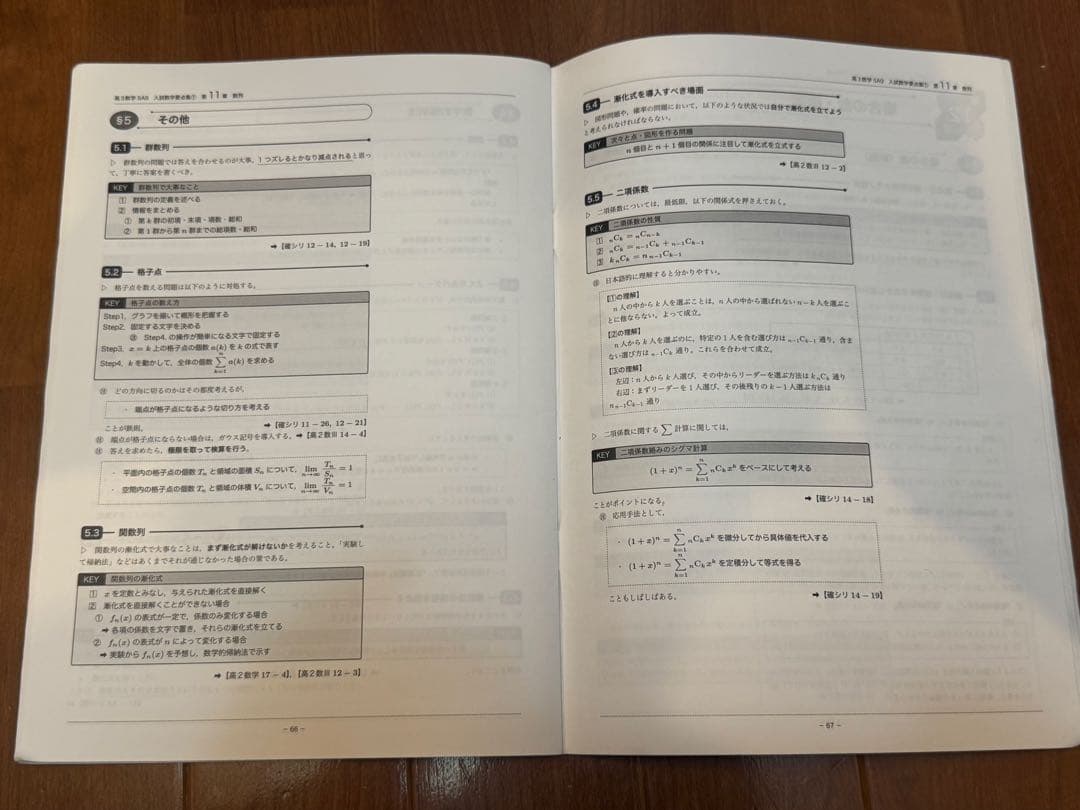 高3数学SAβ 入試数学要点集① 第11章 数列
§5 その他
5.1 群数列
▷ 群数列の問題では答えを合わせるのが大事，1つズレるとかなり減点されると思っ
て，丁寧に答案を書くべき。
KEY 群数列で大事なこと
① 群数列の定義を述べる
② 情報をまとめる
① 第k群の初項・末項・項数・総和
② 第1群から第n群までの総項数・総和
➡【確シリ12－14，12－19】
5.2 格子点
▷ 格子点を数える問題は以下のように対処する。
KEY 格子点の数え方
Step1．グラフを描いて概形を把握する
Step2．固定する文字を決める
㊟ Step4．の操作が簡単になる文字で固定する
Step3．x＝k上の格子点の個数a(k)をkの式で表す
Step4．kを動かして，全体の個数 \sum_{k=1}^{n} a(k) を求める
㊟ どの方向に切るのかはその都度考えるが，
・ 端点が格子点になるような切り方を考える
ことが鉄則。
➡【確シリ11－26，12－21】
㊟ 端点が格子点にならない場合は，ガウス記号を導入する。➡【高2数Ⅲ14－4】
㊟ 答えを求めたら，極限を取って検算を行う。
・ 平面内の格子点の個数 T_n と領域の面積 S_n について，\lim_{n→∞} T_n/S_n = 1
・ 空間内の格子点の個数 T_n と領域の体積 V_n について，\lim_{n→∞} T_n/V_n = 1
5.3 関数列
▷ 関数列の漸化式で大事なことは，まず漸化式が解けないかを考えること。「実験し
て帰納法」などはあくまでそれが通じなかった場合の策である。
KEY 関数列の漸化式
① xを定数とみなし，与えられた漸化式を直接解く
② 漸化式を直接解くことができない場合
① f_n(x)の表式が一定で，係数のみ変化する場合
➡ 各項の係数を文字で置き，それらの漸化式を立てる
② f_n(x)の表式がnによって変化する場合
➡ 実験からf_n(x)を予想し，数学的帰納法で示す
➡【高2数学17－4】，【高2数Ⅲ12－3】
－66－
高3数学SAβ 入試数学要点集① 第11章 数列
5.4 漸化式を導入すべき場面
▷ 図形問題や，確率の問題において，以下のような状況では自分で漸化式を立てよう
と考えられなければならない。
KEY 次々と点・図形を作る問題
n個目とn＋1個目の関係に注目して漸化式を立式する
➡【高2数Ⅲ12－2】
5.5 二項係数
▷ 二項係数については，最低限，以下の関係式を押さえておく。
KEY 二項係数の性質
① nCk = nCn−k
② nCk = n−1Ck + n−1Ck−1
③ k nCk = n n−1Ck−1
㊟ 日本語的に理解すると分かりやすい。
【①の理解】
n人の中からk人を選ぶことは，n人の中から選ばれないn−k人を選ぶこ
とに他ならない。よって成立。
【②の理解】
n人からk人を選ぶのに，特定の1人を含む選び方は n−1Ck−1 通り，含ま
ない選び方は n−1Ck 通り。これらを合わせて成立。
【③の理解】
左辺：n人からk人選び，その中からリーダーを選ぶ方法は k nCk 通り
右辺：まずリーダーを1人選び，その後残りのk−1人選ぶ方法は
n n−1Ck−1 通り
▷ 二項係数に関する ∑ 計算に関しては，
KEY 二項係数絡みのシグマ計算
(1+x)^n = \sum_{k=1}^{n} nCk x^k をベースにして考える
ことがポイントになる。
➡【確シリ14－18】
㊟ 応用手法として，
・ (1+x)^n = \sum_{k=1}^{n} nCk x^k を微分してから具体値を代入する
・ (1+x)^n = \sum_{k=1}^{n} nCk x^k を定積分して等式を得る
こともしばしばある。
➡【確シリ14－19】
－67－